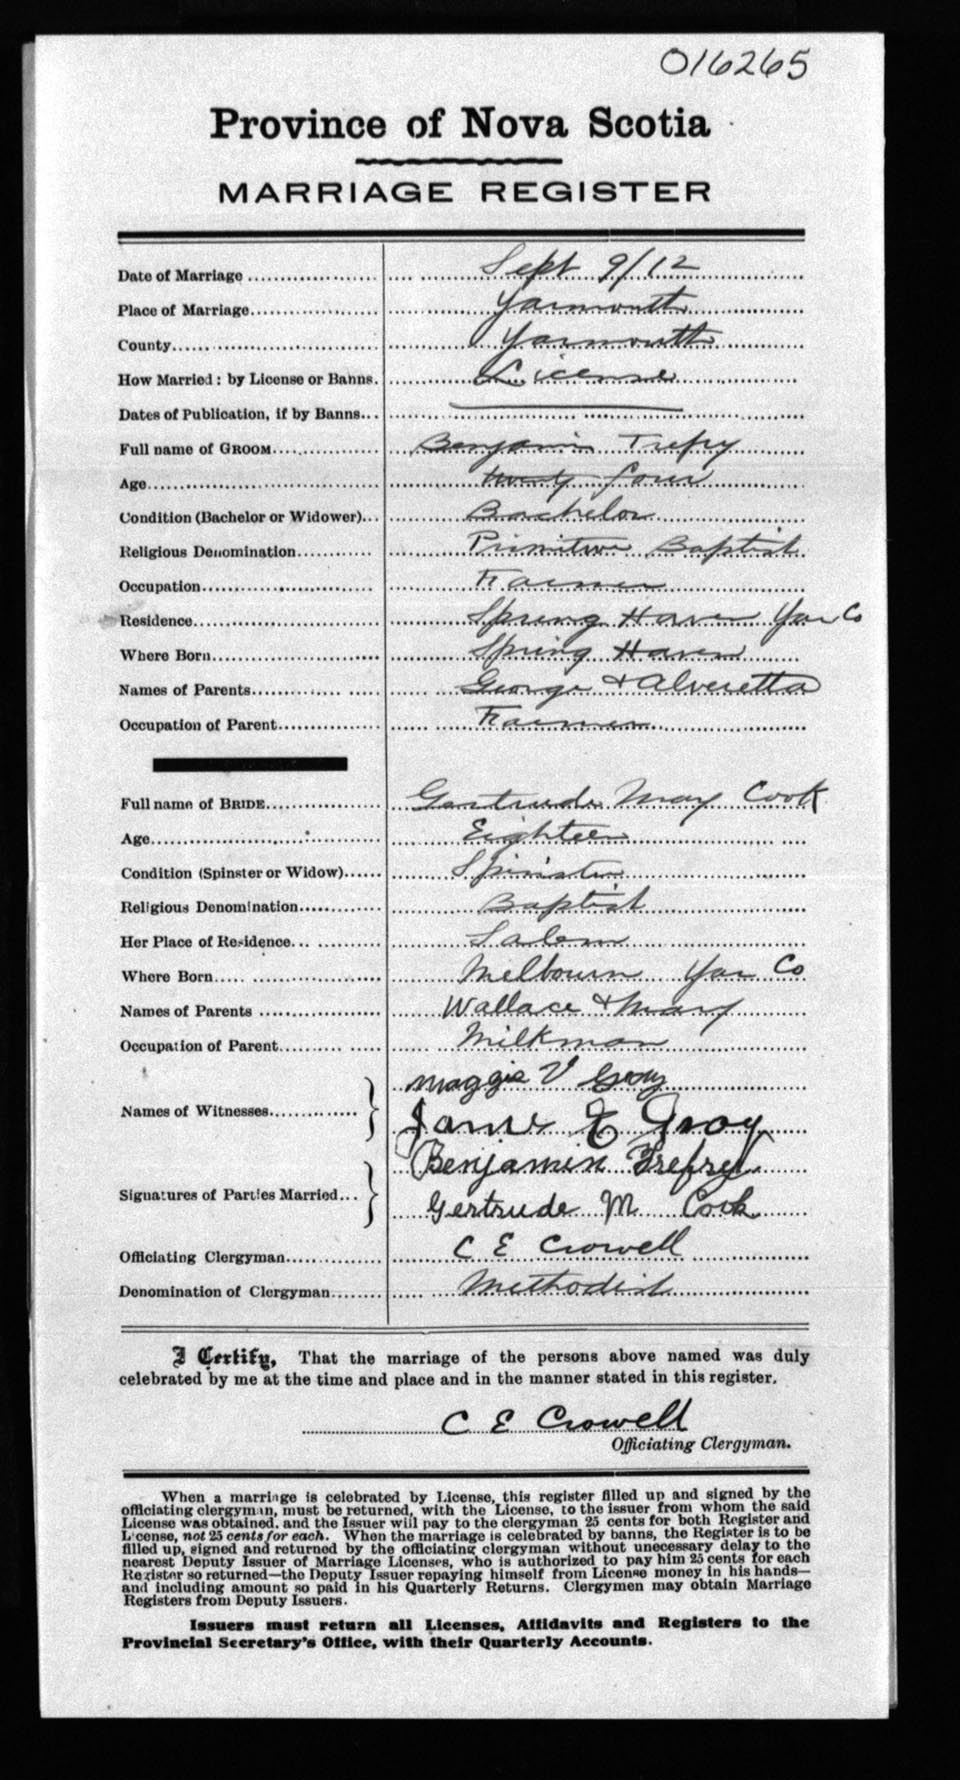 016265
Province of Nova Scotia
MARRIAGE REGISTER
Date of Marriage Sept 9/12
Place of Marriage Yarmouth
County Yarmouth
How Married: by License or Banns. License
Dates of Publication, if by Banns
Full name of GROOM Benjamin Trefry
Age twenty four
Condition (Bachelor or Widower) Bachelor
Religious Denomination Primitive Baptist
Occupation Farmer
Residence Spring Haven Yar Co
Where Born Spring Haven
Names of Parents George + Alveretta
Occupation of Parent Farmer
Full name of BRIDE Gertrude May Cook
Age Eighteen
Condition (Spinster or Widow) Spinster
Religious Denomination Baptist
Her Place of Residence Salem
Where Born Melbourn Yar Co
Names of Parents Wallace + Mary
Occupation of Parent Milkman
Maggie V Gray
Names of Witnesses
Jane E Gray
Benjamin Trefry
Signatures of Parties Married
Gertrude M Cook
Officiating Clergyman C E Crowell
Denomination of Clergyman Methodist
I Certify, That the marriage of the persons above named was duly
celebrated by me at the time and place and in the manner stated in this register.
C E Crowell
Officiating Clergyman.
When a marriage is celebrated by License, this register filled up and signed by the
officiating clergyman, must be returned, with the License, to the issuer from whom the said
License was obtained, and the Issuer will pay to the clergyman 25 cents for both Register and
License, not 25 cents for each. When the marriage is celebrated by banns, the Register is to be
filled up, signed and returned by the officiating clergyman without unecessary delay to the
nearest Deputy Issuer of Marriage Licenses, who is authorized to pay him 25 cents for each
Register so returned—the Deputy Issuer repaying himself from License money in his hands—
and including amount so paid in his Quarterly Returns. Clergymen may obtain Marriage
Registers from Deputy Issuers.
Issuers must return all Licenses, Affidavits and Registers to the
Provincial Secretary's Office, with their Quarterly Accounts.